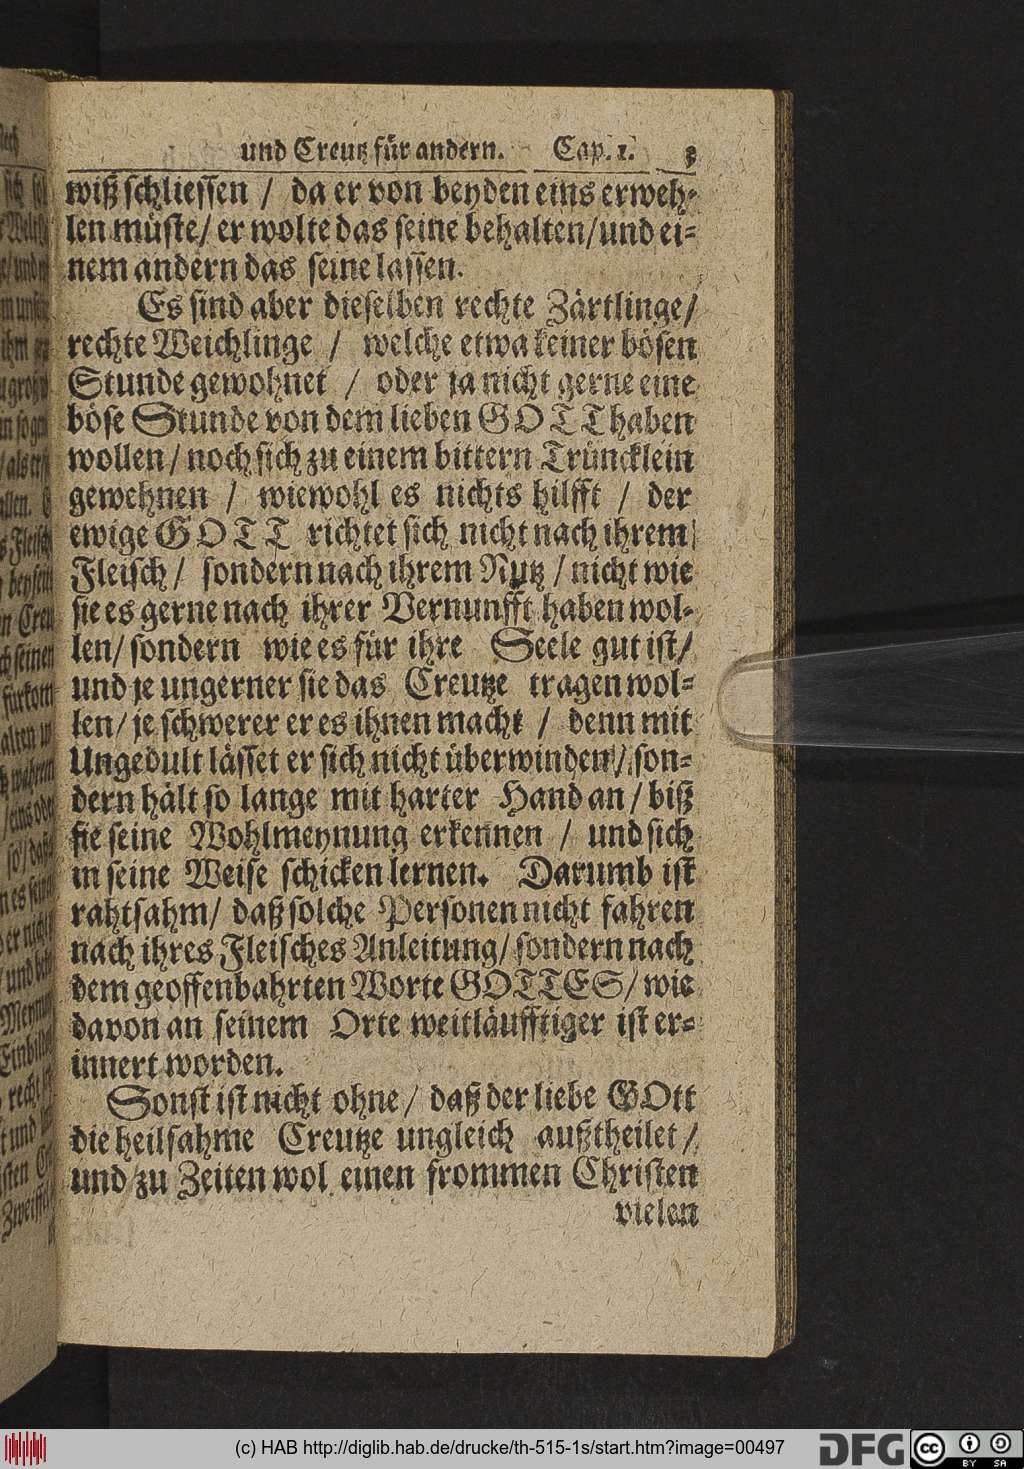 und Creutz für andern. Cap. 1. 3
wiß schliessen / da er von beyden eins erweh-
len müste/ er wolte das seine behalten/ und ei-
nem andern das seine lassen.
Es sind aber dieselben rechte Zärtlinge/
rechte Weichlinge / welche etwa keiner bösen
Stunde gewohnet / oder ja nicht gerne eine
böse Stunde von dem lieben GOTT haben
wollen / noch sich zu einem bittern Trüncklein
gewehnen / wiewohl es nichts hilfft / der
ewige GOTT richtet sich nicht nach ihrem
Fleisch / sondern nach ihrem Nutz / nicht wie
sie es gerne nach ihrer Vernunfft haben wol-
len/ sondern wie es für ihre Seele gut ist/
und je ungerner sie das Creutze tragen wol-
len/ je schwerer er es ihnen macht / denn mit
Ungedult lässet er sich nicht überwinden/ son-
dern hält so lange mit harter Hand an / biß
sie seine Wohlmeynung erkennen / und sich
in seine Weise schicken lernen. Darumb ist
rahtsahm/ daß solche Personen nicht fahren
nach ihres Fleisches Anleitung/ sondern nach
dem geoffenbahrten Worte GOTTES/ wie
davon an seinem Orte weitläufftiger ist er-
innert worden.
Sonst ist nicht ohne / daß der liebe GOtt
die heilsahme Creutze ungleich außtheilet /
und zu Zeiten wol einen frommen Christen
vielen
(c) HAB http://diglib.hab.de/drucke/th-515-1s/start.htm?image=00497
DFG
cc
BY SA